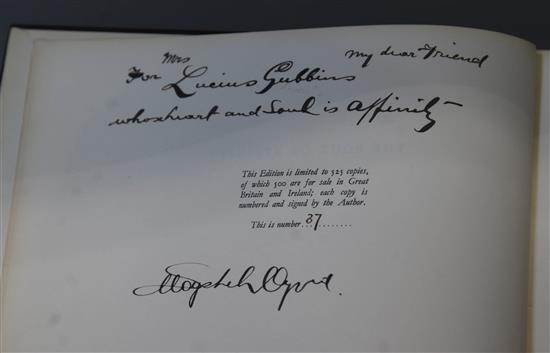 Mrs my dear Friend
For Lucius Gubbins
whose heart and Soul is affinity
This Edition is limited to 525 copies,
of which 500 are for sale in Great
Britain and Ireland; each copy is
numbered and signed by the Author.
This is number...87...........